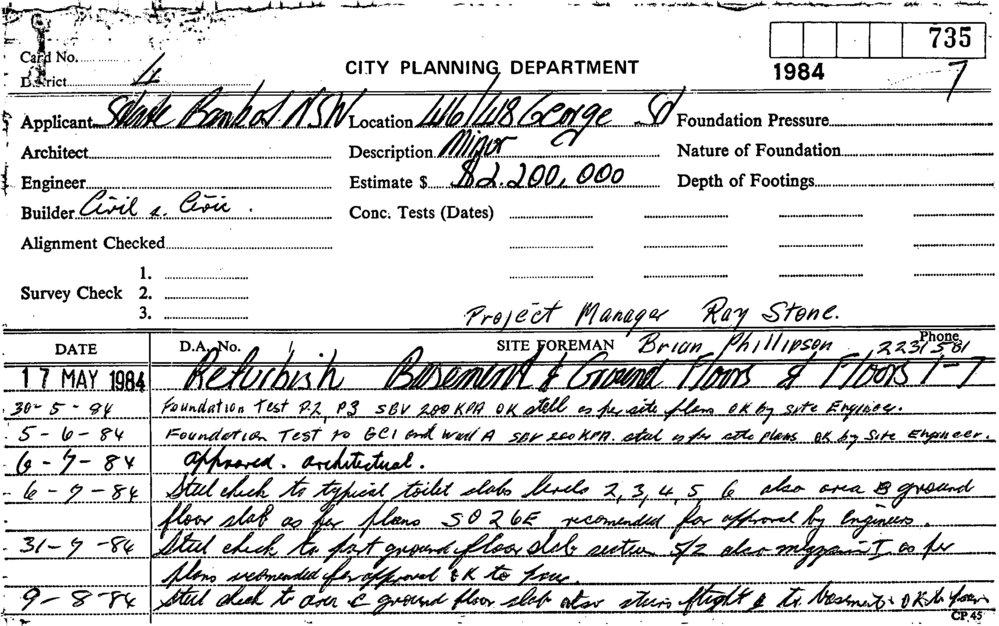 735
Card No.
District 4
CITY PLANNING DEPARTMENT
1984
7
Applicant State Bank of NSW Location 46/48 George St Foundation Pressure
Architect Description Minor Nature of Foundation
Engineer Estimate $ $2.200,000 Depth of Footings
Builder Civil & Civic. Conc. Tests (Dates)
Alignment Checked
1.
Survey Check 2.
3.
Project Manager Ray Stone.
DATE D.A. No. SITE FOREMAN Brian Phillipson Phone 2231581
17 MAY 1984 Refurbish Basement & Ground Floors & Floors 1-7
30-5-84 Foundation Test P.2, P3 SBV 200 KPA OK steel as per site plans OK by site Engineer.
5-6-84 Foundation Test to GC1 and wall A SBV 200 KPA. steel as per site plans OK by Site Engineer.
6-7-84 approved. architectual.
6-7-84 Steel check to typical toilet slabs levels 2, 3, 4, 5, 6 also area B ground
floor slab as per plans S026E recomended for approval by Engineers.
31-7-84 Steel check to part ground floor slab section 5/2 also as per
plans recomended for approval OK to pour.
9-8-84 Steel check to area C ground floor slab also stairs flight to basement. OK to pour
CP 45